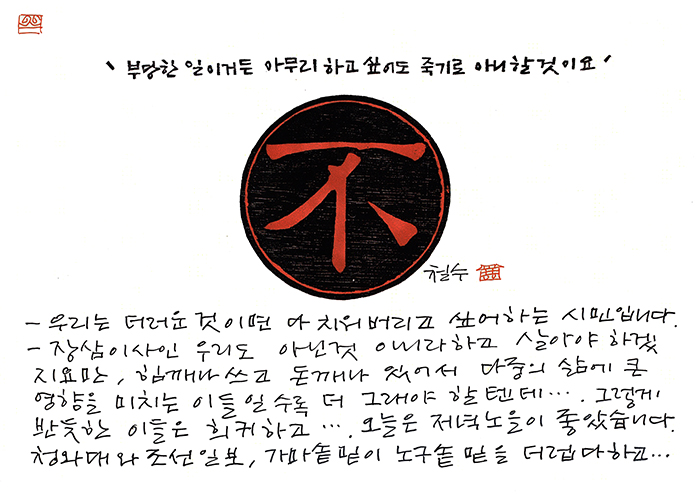 ‵ 부당한 일이거든 아무리 하고 싶어도 죽기로 아니할 것이요 ′
不
철수
- 우리는 더러운 것이면 다 치워버리고 싶어하는 시민입니다.
- 장삼이사인 우리도 아닌것 아니라하고 살아야 하겠
지요만, 힘깨나 쓰고 돈깨나 있어서 대중의 삶에 큰
영향을 미치는 이들일수록 더 그래야 할텐데…. 그렇게
반듯한 이들은 희귀하고 …. 오늘은 저녁노을이 좋았습니다.
청와대와 조선일보, 가마솥 밑이 노구솥 밑을 더럽다하고…